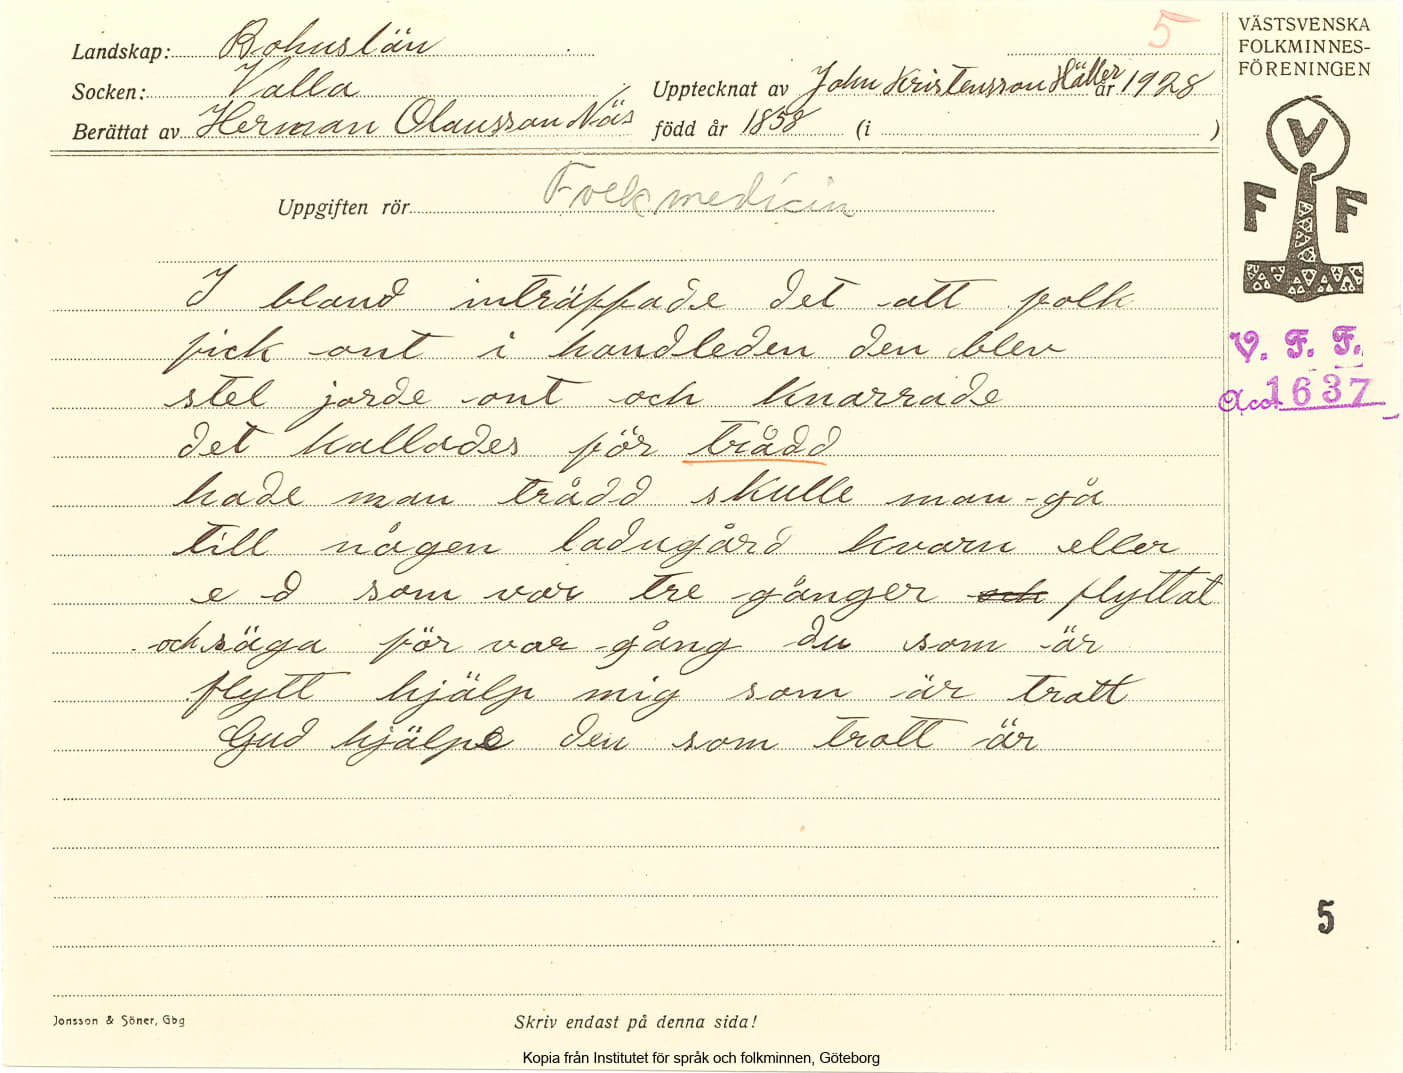 5
VÄSTSVENSKA
FOLKMINNES-
FÖRENINGEN
Landskap: Bohuslän
Socken: Valla
Upptecknat av John Kristensson Häller år 1928
Berättat av Herman Olausson Näs född år 1858 (i )
V
F F
Uppgiften rör Folkmedicin
I bland inträffade det att folk
fick ont i handleden den blev
stel jorde ont och knarrade
det kallades för trådd
hade man trådd skulle man gå
till någen ladugård kvarn eller
e d som var tre gånger och flyttat
och säga för var gång du som är
flytt hjälp mig som är trott
Gud hjälpe den som trott är
V. F. F.
Acc. 1637
5
Jonsson & Söner, Gbg
Skriv endast på denna sida!
Kopia från Institutet för språk och folkminnen, Göteborg